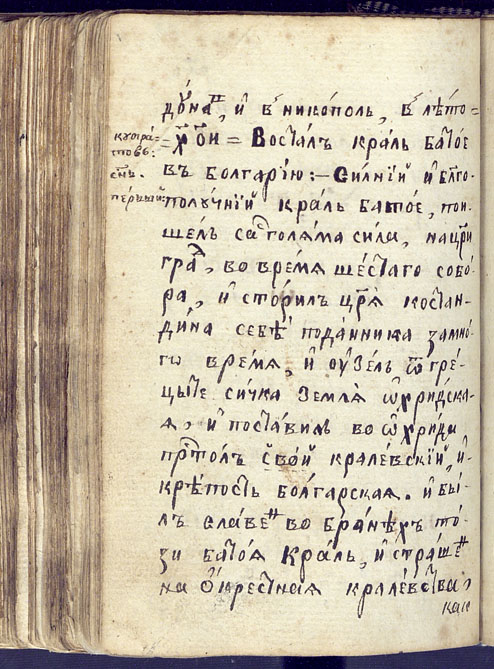 дꙋ́наⷫ҇, и҆ в̾ никопо́ль, в̾ лѣ́то=
=х҃ои = Воста́лъ кра́ль бато́е
въ болга́рїю:— Си́лнїй и҆ бл҃го-
полꙋ́чнїй кра́ль бато́е, пои-
шѐлъ саⷭ҇ голѧ́ма си́ла, на цр҃и
граⷣ, во вре́мѧ ше́стаго собо́-
ра, и҆ сто́рилъ цр҃ѧ̀ костан-
ди́на себѣ̀ пода́нника за мно́-
го вре́мѧ, и҆ ᲂу҆зе́лъ ѿ гре́-
цыте си́чка землѧ̀ ѡ҆́хридска-
ѧ, и҆ поста́вилъ во ѡ҆́хриди
прⷭ҇то́лъ сво́й крале́вскїй, и҆
крѣ́пость болга́рская. и҆ бы́-
лъ сла́веⷩ҇ во бра́нѣхъ то́-
зи бато́ѧ Кра́ль, и҆ стра́шеⷩ҇
на ѻ҆кре́стнаѧ крале́вства,
как
кꙋвра́-
товъ:
сн҃ъ.
пе́рвый: